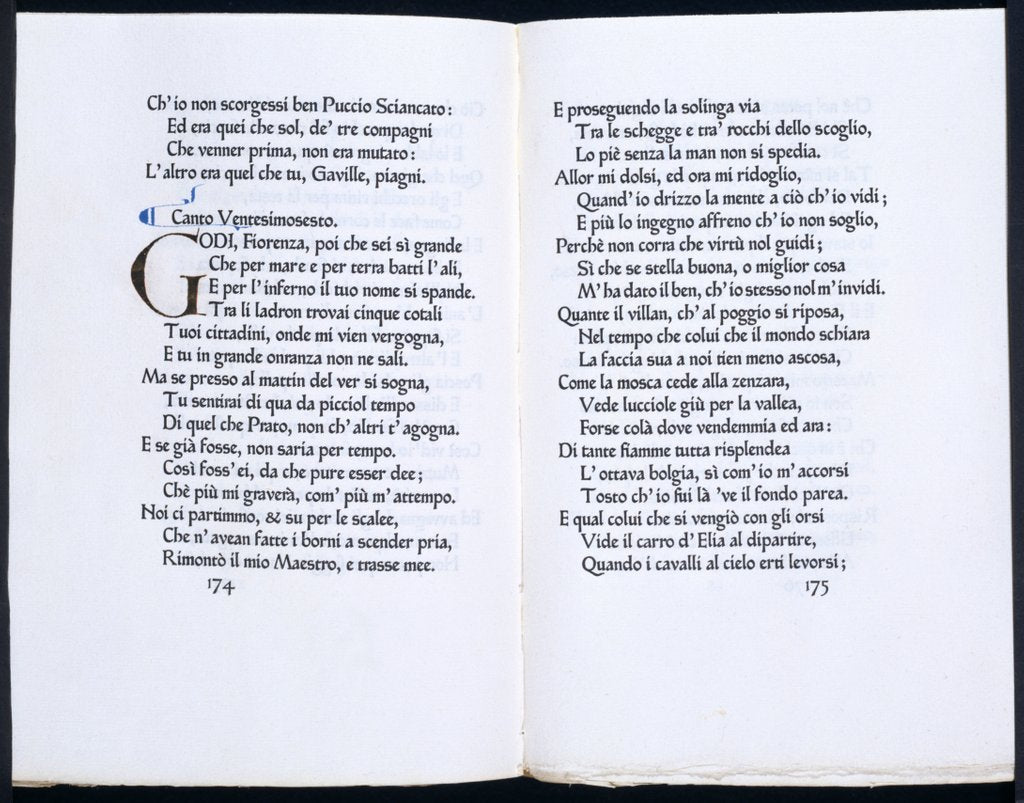 Ch' io non scorgessi ben Puccio Sciancato:
Ed era quei che sol, de' tre compagni
Che venner prima, non era mutato:
L'altro era quel che tu, Gaville, piagni.
Canto Ventesimosesto.
GODI, Fiorenza, poi che sei sì grande
Che per mare e per terra batti l'ali,
E per l'inferno il tuo nome si spande.
Tra li ladron trovai cinque cotali
Tuoi cittadini, onde mi vien vergogna,
E tu in grande onranza non ne sali.
Ma se presso al mattin del ver si sogna,
Tu sentirai di qua da picciol tempo
Di quel che Prato, non ch' altri t'agogna.
E se già fosse, non saria per tempo.
Così foss' ei, da che pure esser dee;
Chè più mi graverà, com' più m'attempo.
Noi ci partimmo, & su per le scalee,
Che n'avean fatte i borni a scender pria,
Rimontò il mio Maestro, e trasse mee.
174
E proseguendo la solinga via
Tra le schegge e tra' rocchi dello scoglio,
Lo piè senza la man non si spedia.
Allor mi dolsi, ed ora mi ridoglio,
Quand'io drizzo la mente a ciò ch' io vidi;
E più lo ingegno affreno ch' io non soglio,
Perchè non corra che virtù nol guidi;
Sì che se stella buona, o miglior cosa
M'ha dato il ben, ch' io stesso nol m'invidi.
Quante il villan, ch' al poggio si riposa,
Nel tempo che colui che il mondo schiara
La faccia sua a noi tien meno ascosa,
Come la mosca cede alla zenzara,
Vede lucciole giù per la vallea,
Forse colà dove vendemmia ed ara:
Di tante fiamme tutta risplendea
L'ottava bolgia, sì com' io m'accorsi
Tosto ch' io fui là 've il fondo parea.
E qual colui che si vengiò con gli orsi
Vide il carro d'Elia al dipartire,
Quando i cavalli al cielo erti levorsi;
175